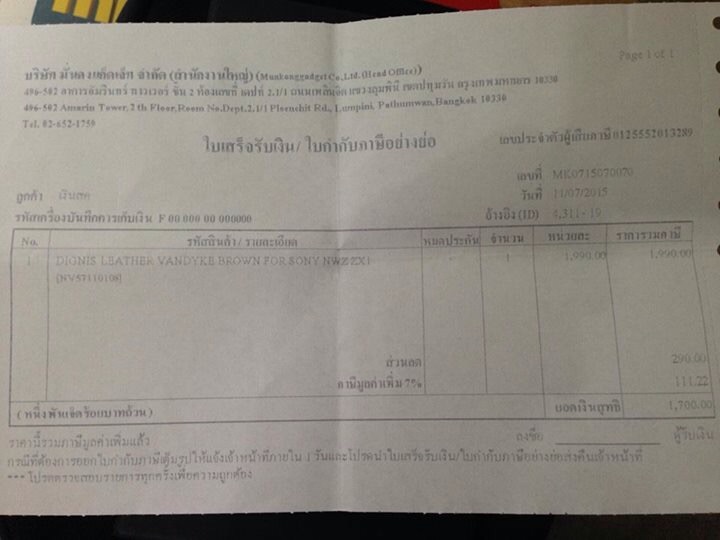 Page 1 of 1
บริษัท มั่นคงแก็ดเจ็ท จำกัด (สำนักงานใหญ่) (Munkonggadget Co.,Ltd. (Head Office))
496-502 อาคารอัมรินทร์ ทาวเวอร์ ชั้น 2 ห้องเลขที่ เดปท์ 2.1/1 ถนนเพลินจิต แขวงลุมพินี เขตปทุมวัน กรุงเทพมหานคร 10330
496-502 Amarin Tower, 2 th Floor,Room No.Dept.2.1/1 Ploenchit Rd., Lumpini, Pathumwan,Bangkok 10330
Tel. 02-652-1750
ใบเสร็จรับเงิน/ ใบกำกับภาษีอย่างย่อ
เลขประจำตัวผู้เสียภาษี 0125552013289
เลขที่ MK0715070070
ลูกค้า เงินสด
วันที่ 11/07/2015
รหัสเครื่องบันทึกการเก็บเงิน F 00 800 00 000000
อ้างอิง (ID) 4,311 - 19
No. รหัสสินค้า / รายละเอียด หมดประกัน จำนวน หน่วยละ ราคารวมภาษี
1 DIGNIS LEATHER VANDYKE BROWN FOR SONY NWZ ZX1 - 1 1,990.00 1,990.00
(NV57110108)
ส่วนลด 290.00
ภาษีมูลค่าเพิ่ม 7% 111.22
(หนึ่งพันเจ็ดร้อยบาทถ้วน) ยอดเงินสุทธิ 1,700.00
ราคานี้รวมภาษีมูลค่าเพิ่มแล้ว
ลงชื่อ ผู้รับเงิน
กรณีที่ต้องการออกใบกำกับภาษีเต็มรูปให้แจ้งเจ้าหน้าที่ภายใน 1 วันและโปรดนำใบเสร็จรับเงิน/ใบกำกับภาษีอย่างย่อส่งคืนเจ้าหน้าที่
*** โปรดตรวจสอบรายการทุกครั้งเพื่อความถูกต้อง